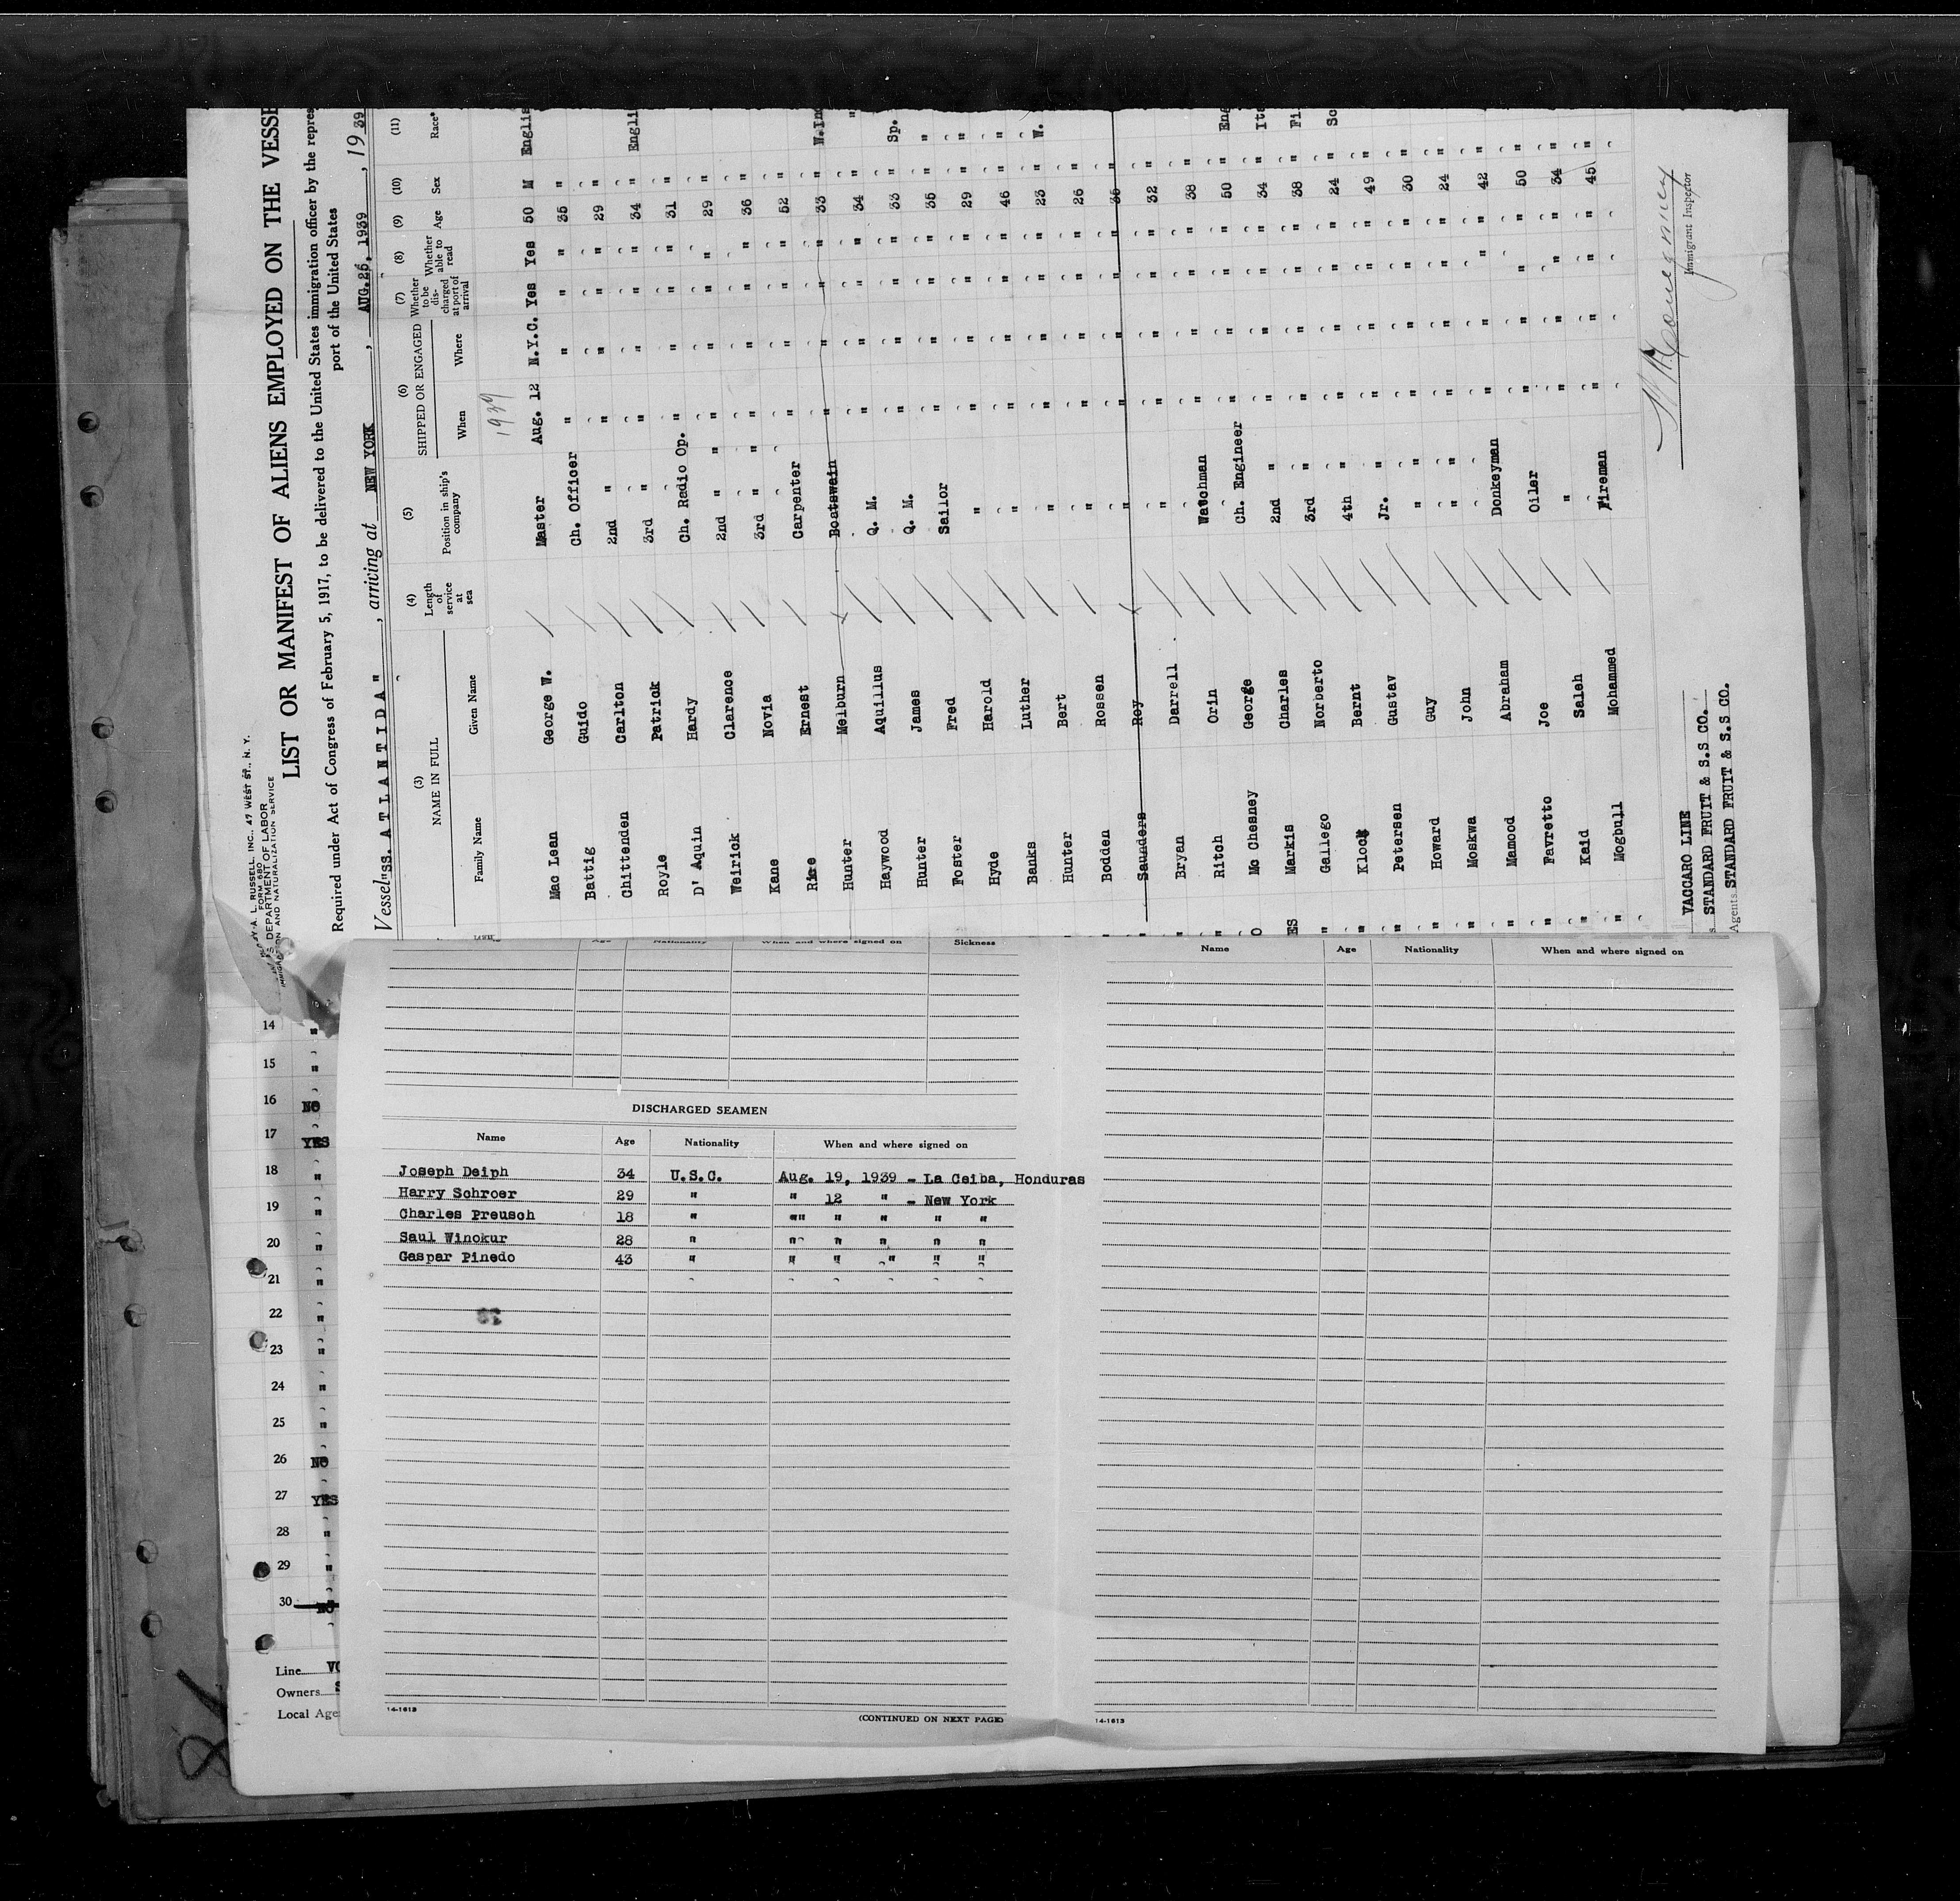 A. L. RUSSELL, INC., 47 WEST ST., N. Y.
FORM 680
DEPARTMENT OF LABOR
IMMIGRATION AND NATURALIZATION SERVICE
LIST OR MANIFEST OF ALIENS EMPLOYED ON THE VESSE
Required under Act of Congress of February 5, 1917, to be delivered to the United States immigration officer by the repres
port of the United States
Vessel "SS. ATLANTIDA" , arriving at NEW YORK , AUG.25, 1939 , 19 39
(3) (4) (5) (6) (7) (8) (9) (10) (11)
NAME IN FULL Length of service at sea Position in ship's company SHIPPED OR ENGAGED Whether to be discharged at port of arrival Whether able to read Age Sex Race*
Family Name Given Name When Where
1939
Mac Lean George W. Master Aug. 12 N.Y.C. Yes Yes 50 M Englis
Battig Guido Ch. Officer " " " " 35 "
Chittenden Carlton 2nd " " " " " 29 "
Royle Patrick 3rd " " " " " 34 " Engli
D' Aquin Hardy Ch. Radio Op. " " " " 31 "
Weirick Clarence 2nd " " " " " 29 "
Kane Novia 3rd " " " " " 36 "
Ernest Carpenter " " " " 52 "
Hunter Melburn Boatswain " " " " 33 " W.In
Haywood Aquillus Q. M. " " " " 34 " "
Hunter James Q. M. " " " " 33 " Sp.
Foster Fred Sailor " " " " 35 " "
Hyde Harold " " " " " 29 " "
Banks Luther " " " " " 46 " "
Hunter Bert " " " " " 23 " W.
Bodden Rossen " " " " " 26 "
Saunders Roy " " " " " 36 "
Bryan Darrell " " " " " 32 "
Ritch Orin Watchman " " " " 38 "
Mc Chesney George Ch. Engineer " " " " 50 " Eng
Markis Charles 2nd " " " " " 34 " Ita
Gallego Norberto 3rd " " " " " 38 " Fi
Klock Bernt 4th " " " " " 24 " Sc
Petersen Gustav Jr. " " " " " 49 "
Howard Guy " " " " " " 30 "
Moskwa John " " " " " " 24 "
Mamood Abraham Donkeyman " " " " 42 "
Favretto Joe Oiler " " " " 50 "
Kaid Saleh " " " " " 34 "
Mogbull Mohammed Fireman " " " " 45 "
VACCARO LINE
STANDARD FRUIT & S.S CO.
Agents STANDARD FRUIT & S.S CO.
Immigrant Inspector
Age Nationality When and where signed on Sickness
DISCHARGED SEAMEN
Name Age Nationality When and where signed on
Joseph Deiph 34 U.S.C. Aug. 19, 1939 - La Ceiba, Honduras
Harry Schroer 29 " " 12 " - New York
Charles Preusch 18 " " " " " "
Saul Winokur 28 " " " " " "
Gaspar Pinedo 43 " " " " " "
14-1613
(CONTINUED ON NEXT PAGE)
Name Age Nationality When and where signed on
14-1613
14 "
15 "
16 NO
17 YES
18 "
19 "
20 "
21 "
22 "
23 "
24 "
25 "
26 NO
27 YES
28 "
29 "
30 NO
Line
Owners
Local Age